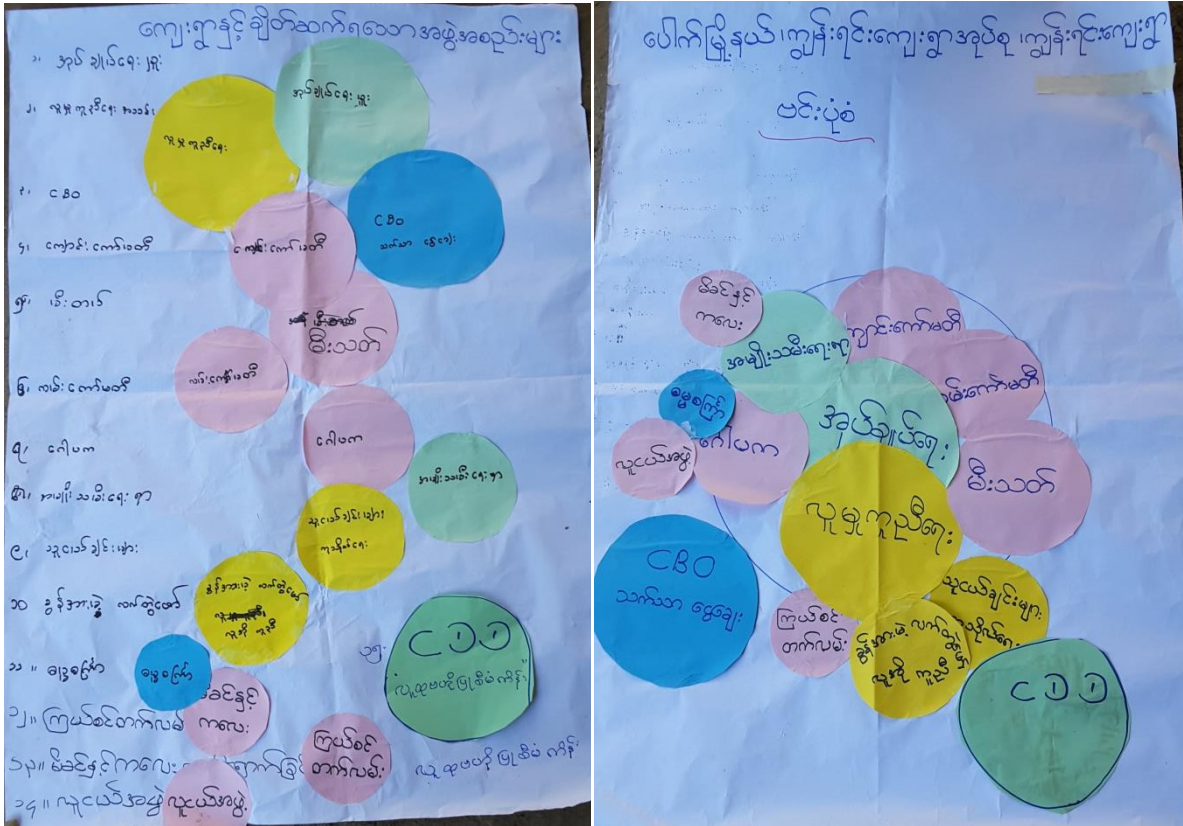 ကျေးရွာနှင့် ချိတ်ဆက်ရသောအဖွဲ့အစည်းများ
၁၊ အုပ်ချုပ်ရေးမှူး
၂၊ လူမှုကူညီရေး
၃၊ CBO
၄၊ ကျောင်းကော်မတီ
၅၊ မီးသတ်
၆၊ လမ်းကော်မတီ
၇၊ ဂေါပက
၈၊ အမျိုးသမီးရေးရာ
၉၊ သူငယ်ချင်းများ
၁၀ ခွန်အားမဲ့ လက်တွဲဖော်
၁၁ ။ ဓမ္မစကြာ
၁၂ ။ ကြယ်စင်တက်လမ်း
၁၃ ။ မိခင်နှင့်ကလေး
၁၄ ။ လူငယ်အဖွဲ့
၁၅.
အုပ်ချုပ်ရေးမှူး
လူမှုကူညီရေး
CBO
သက်သာ ချေးငွေ
ကျောင်းကော်မတီ
မီးသတ်
လမ်းကော်မတီ
ဂေါပက
အမျိုးသမီးရေးရာ
သူငယ်ချင်းများ
ခွန်အားမဲ့ လက်တွဲဖော်
လူအို ကူညီ
ဓမ္မစကြာ
မိခင်နှင့်
ကလေး
CDD
လူထုဗဟိုပြုစီမံကိန်း
ကြယ်စင်
တက်လမ်း
လူထုဗဟိုပြုစီမံကိန်း
လူငယ်အဖွဲ့
ပေါက်မြို့နယ် ၊ ကျွန်းရင်းကျေးရွာအုပ်စု ၊ ကျွန်းရင်းကျေးရွာ
ဗင်းပုံစံ
မိခင်နှင့်
ကလေး
အမျိုးသမီးရေးရာ
ကျောင်းကော်မတီ
လမ်းကော်မတီ
ဓမ္မစကြာ
အုပ်ချုပ်ရေး
ဂေါပက
လူငယ်အဖွဲ့
မီးသတ်
လူမှုကူညီရေး
CBO
သက်သာ ငွေချေး
ကြယ်စင်
တက်လမ်း
သူငယ်ချင်းများ
ခွန်အားမဲ့ လက်တွဲဖော်
လူအို ကူညီ
CDD